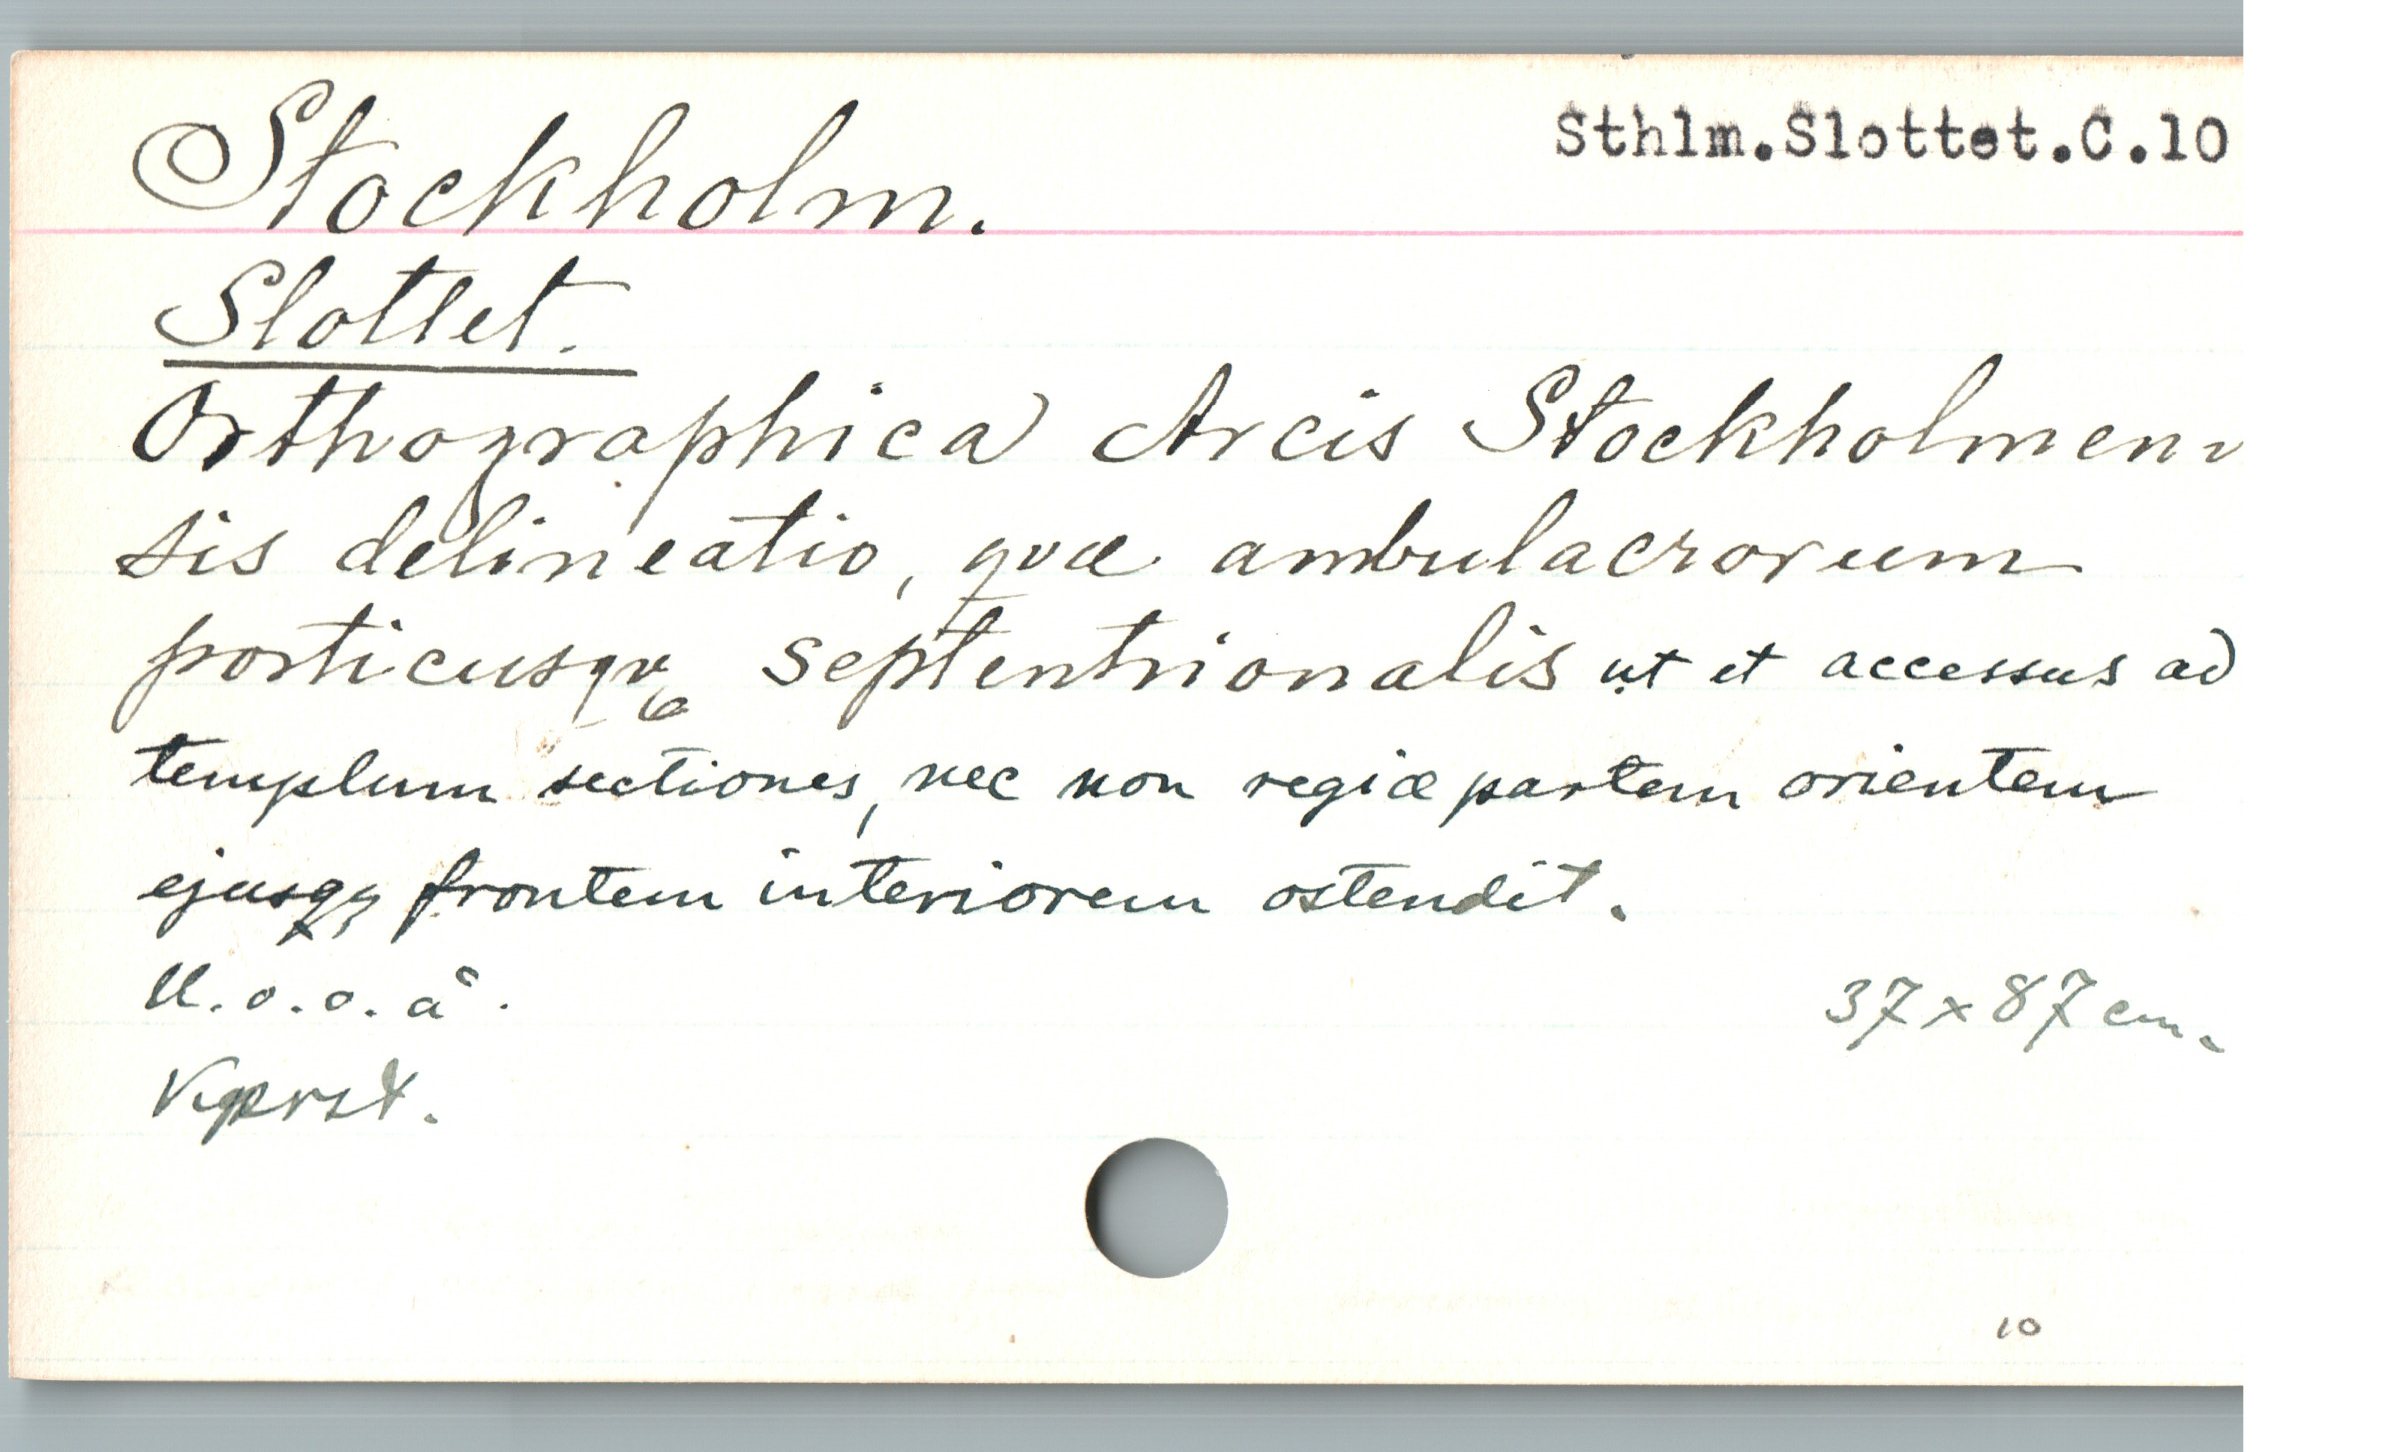 Stockholm.
Sthlm.Slottet.C.10
Slottet.
Orthographica Arcis Stockholmen-
sis delineatio, qvæ ambulacrorum
porticusqve septentrionalis ut et accessus ad
templum sectiones, nec non regiæ partem orientem
ejusqz frontem interiorem ostendit.
U.o.o.å.
37 x 87 cm.
Kprst.
10